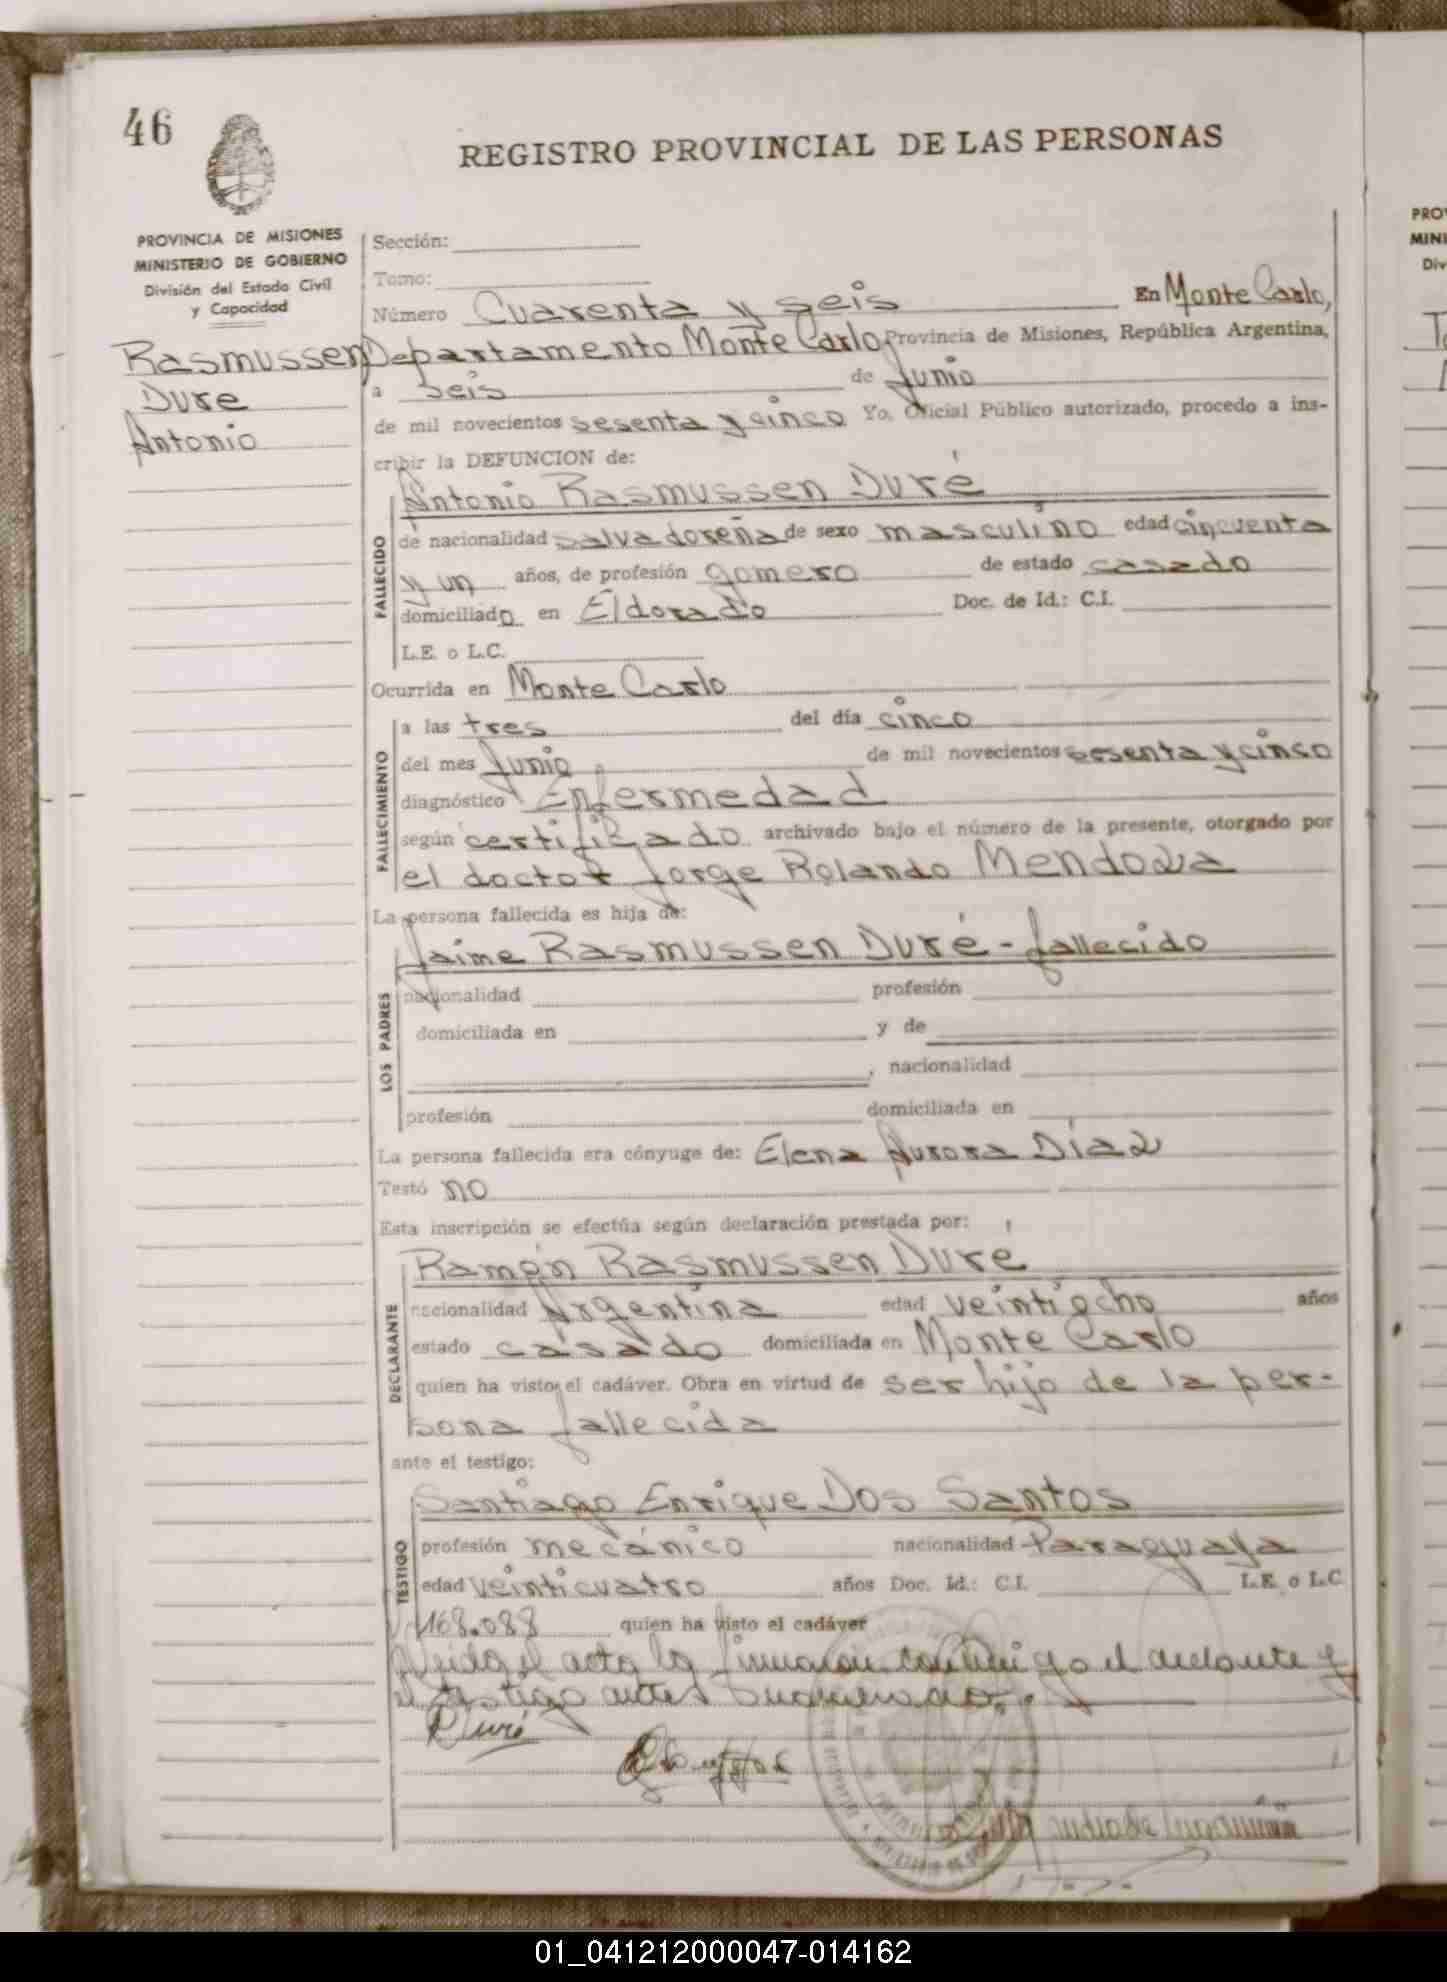 46
REGISTRO PROVINCIAL DE LAS PERSONAS
PROVINCIA DE MISIONES
MINISTERIO DE GOBIERNO
División del Estado Civil
y Capacidad
Rasmussen
Dure
Antonio
Sección:
Tomo:
Número Cuarenta y seis En Monte Carlo,
Departamento Monte Carlo Provincia de Misiones, República Argentina,
a seis de Junio
de mil novecientos sesenta y cinco Yo, Oficial Público autorizado, procedo a ins-
cribir la DEFUNCION de:
Antonio Rasmussen Duré
FALLECIDO
de nacionalidad salvadoreña de sexo masculino edad cincuenta
y un años, de profesión gomero de estado casado
domiciliado en Eldorado Doc. de Id.: C.I.
L.E. o L.C.
Ocurrida en Monte Carlo
FALLECIMIENTO
a las tres del día cinco
del mes Junio de mil novecientos sesenta y cinco
diagnóstico Enfermedad
según certificado archivado bajo el número de la presente, otorgado por
el doctor Jorge Rolando Mendoza
La persona fallecida es hija de:
Jaime Rasmussen Duré - fallecido
LOS PADRES
nacionalidad profesión
domiciliada en y de
, nacionalidad
profesión domiciliada en
La persona fallecida era cónyuge de: Elena Aurora Díaz
Testó no
Esta inscripción se efectúa según declaración prestada por:
Ramón Rasmussen Dure
DECLARANTE
nacionalidad Argentina edad veintiocho años
estado casado domiciliada en Monte Carlo
quien ha visto el cadáver. Obra en virtud de ser hijo de la per-
sona fallecida
ante el testigo:
Santiago Enrique Dos Santos
TESTIGO
profesión mecánico nacionalidad Paraguaya
edad veinticuatro años Doc. Id.: C.I. L.E. o L.C
168.088 quien ha visto el cadáver
el acta la conmigo el y
el testigo antes
R Duré
PROV
MINI
Div
01_041212000047-014162